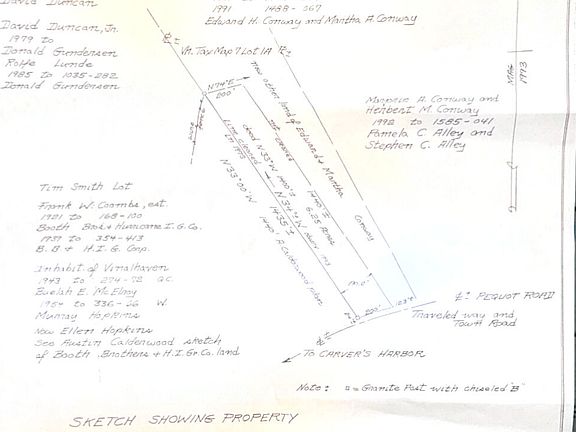 David Duncan
David Duncan, Jr.
1979 to
Donald Gundersen
Rolfe Lunde
1985 to 1035-282
Donald Gundersen
1991 1488-067
Edward H. Conway and Martha A. Conway
Vh. Tax Map 7 Lot 1A
N74°E
200'
now other land of Edward & Martha Conway
Line cleared in 1993
deed N33°W 1440'±
N33°00'W
1440' A. Calderwood
1435'±
6.25 Acres
Marjorie A. Conway and
Herbert M. Conway
1992 to 1585-041
Pamela C. Alley and
Stephen C. Alley
MAG 1993
Tim Smith Lot
Frank W. Coombs, est.
1921 to 168-100
Booth Bros. & Hurricane I. G. Co.
1937 to 354-413
B. B & H. I. G. Corp.
Inhabit. of Vinalhaven
1943 to 274-78 Q.C.
Buelah E. McElroy
1954 to 336-36 W.
Murray Hopkins
Now Ellen Hopkins
See Austin Calderwood sketch
of Booth Brothers & H. I. Gr. Co. land
200'
PEQUOT ROAD
Traveled way and
Town Road
To CARVER'S HARBOR
Note: = Granite Post with chiseled "B"
SKETCH SHOWING PROPERTY